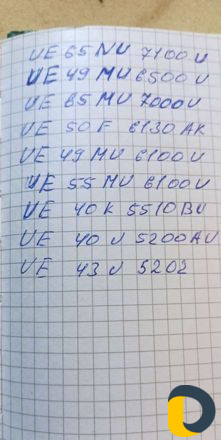 UE 65 NU 7100 U
UE 49 MU 6500 U
UE 65 MU 7000 U
UE 50 F 6130 AK
UE 49 MU 6100 U
UE 55 MU 6100 U
UE 40 K 5510 BU
UE 40 U 5200 AU
UE 43 U 5202